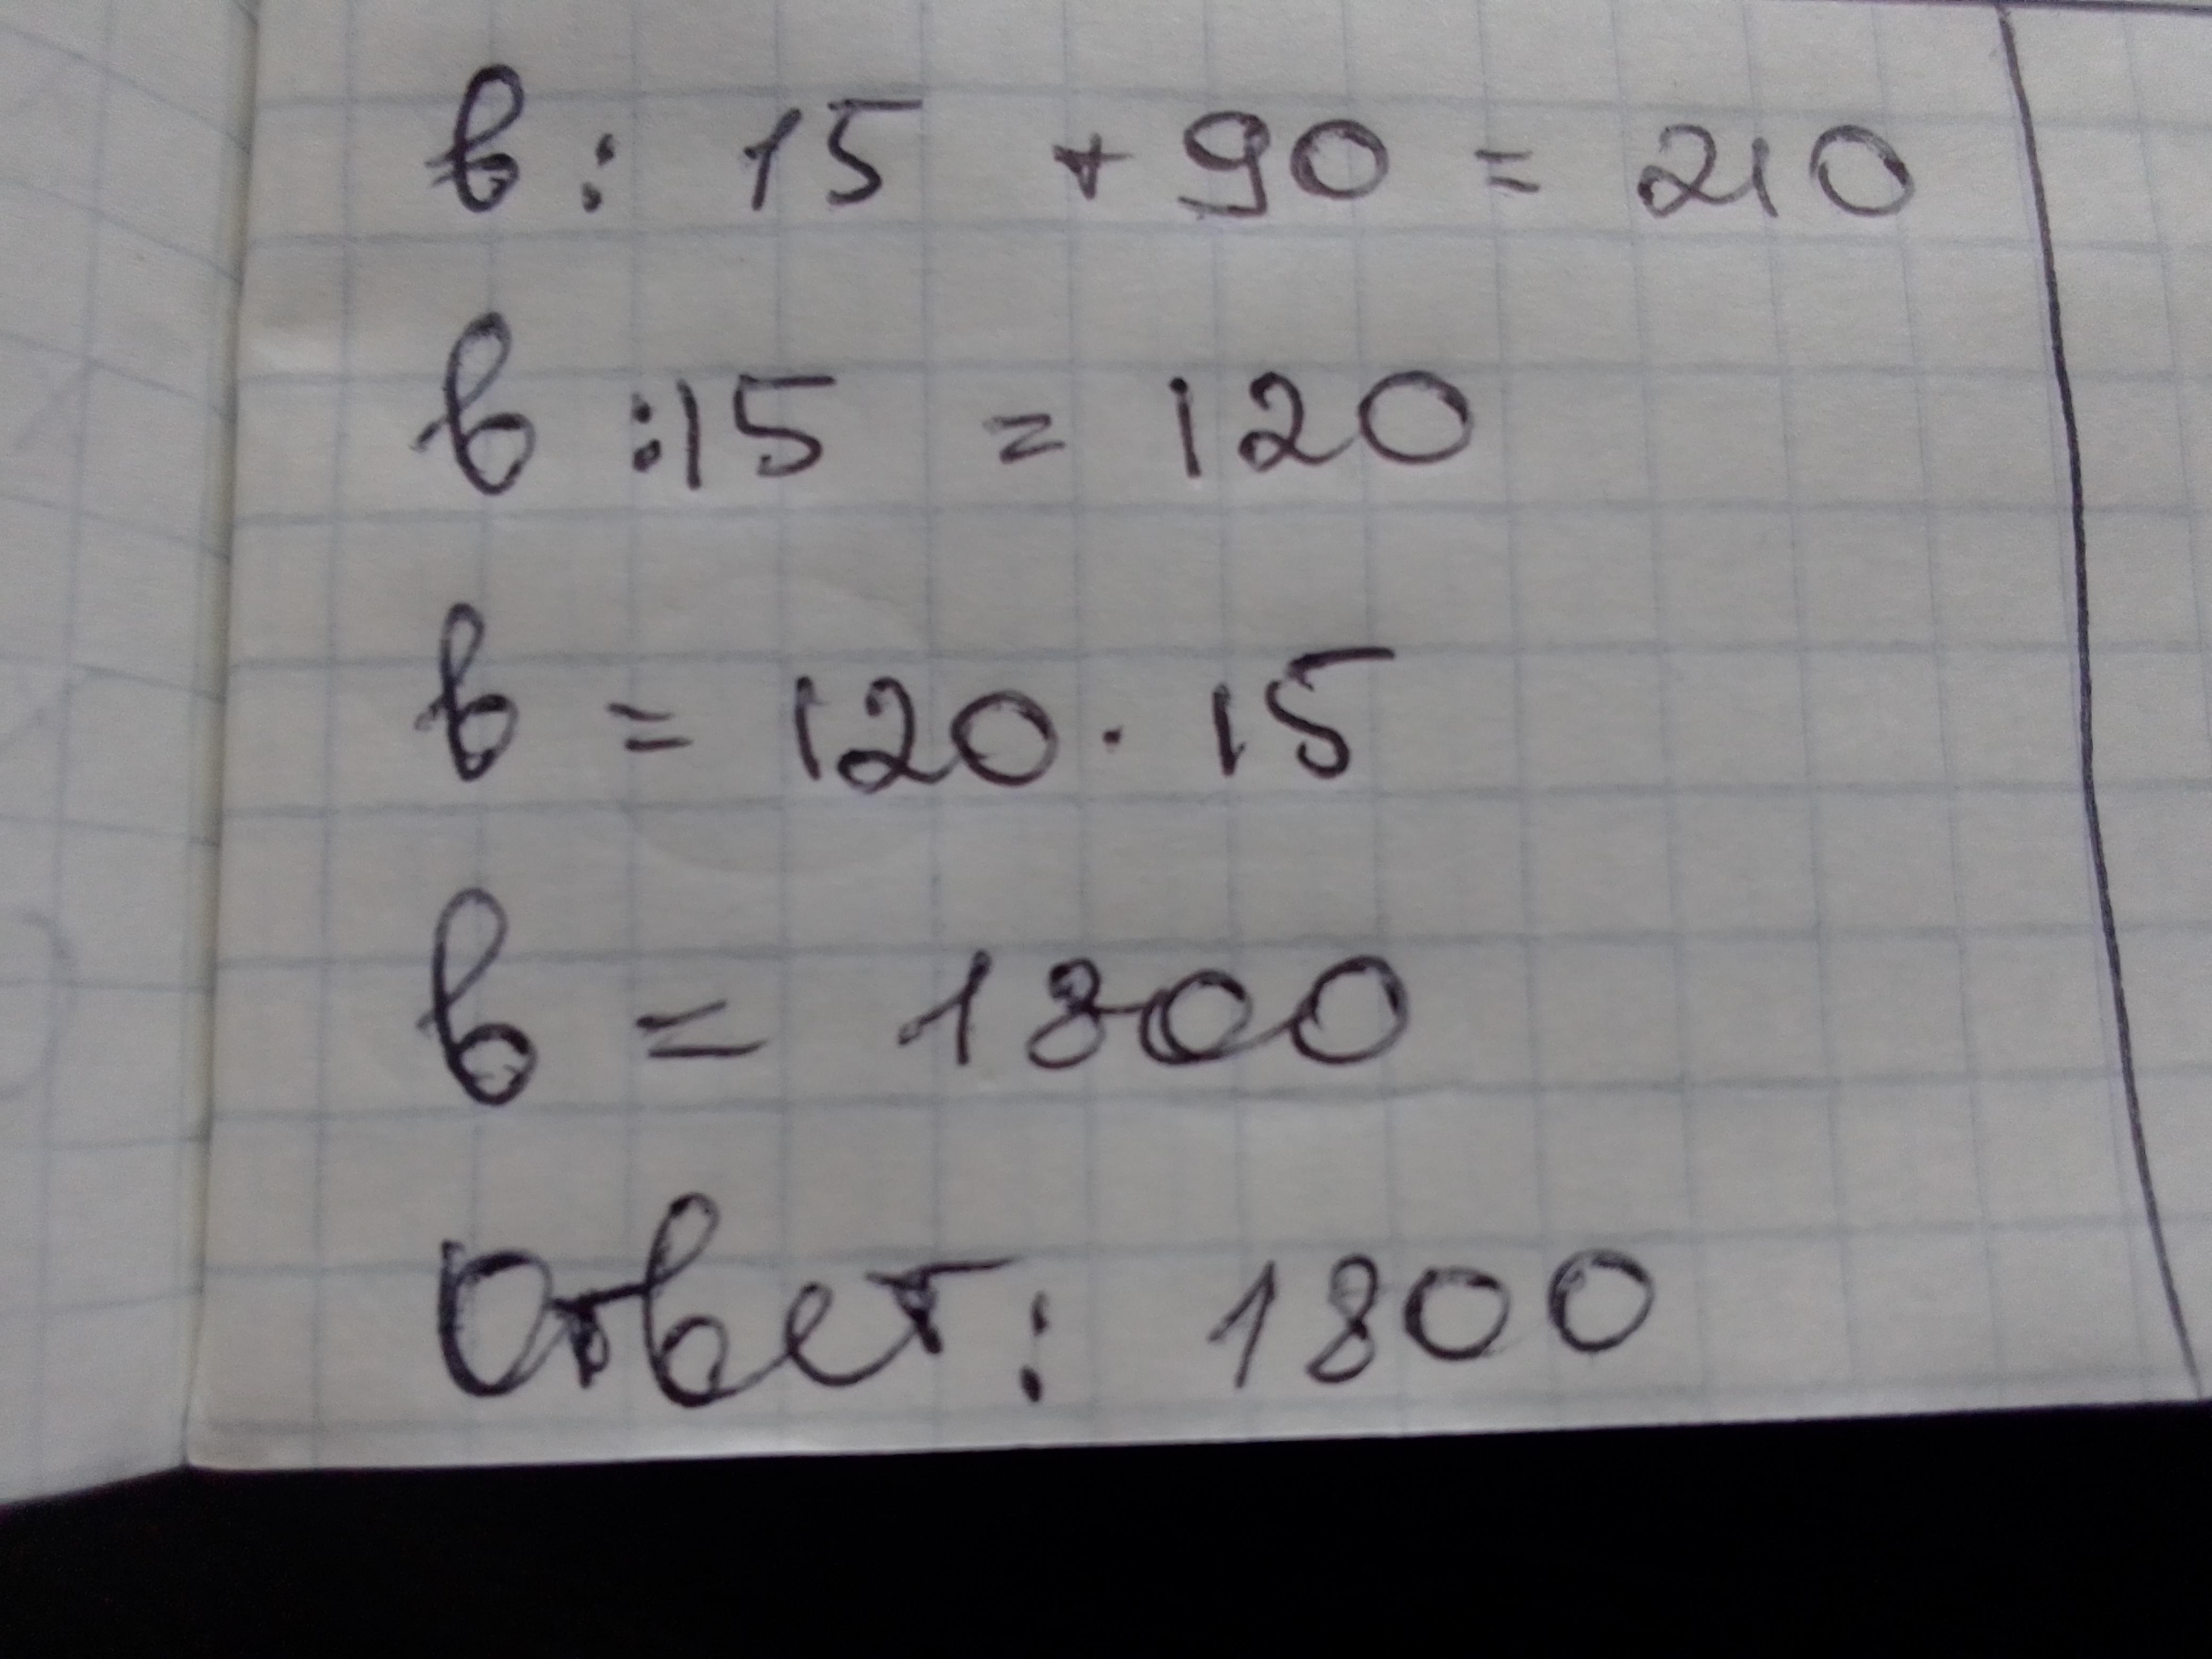 в: 15 + 90 = 210
в :15 = 120
в = 120 · 15
в = 1800
Ответ: 1800